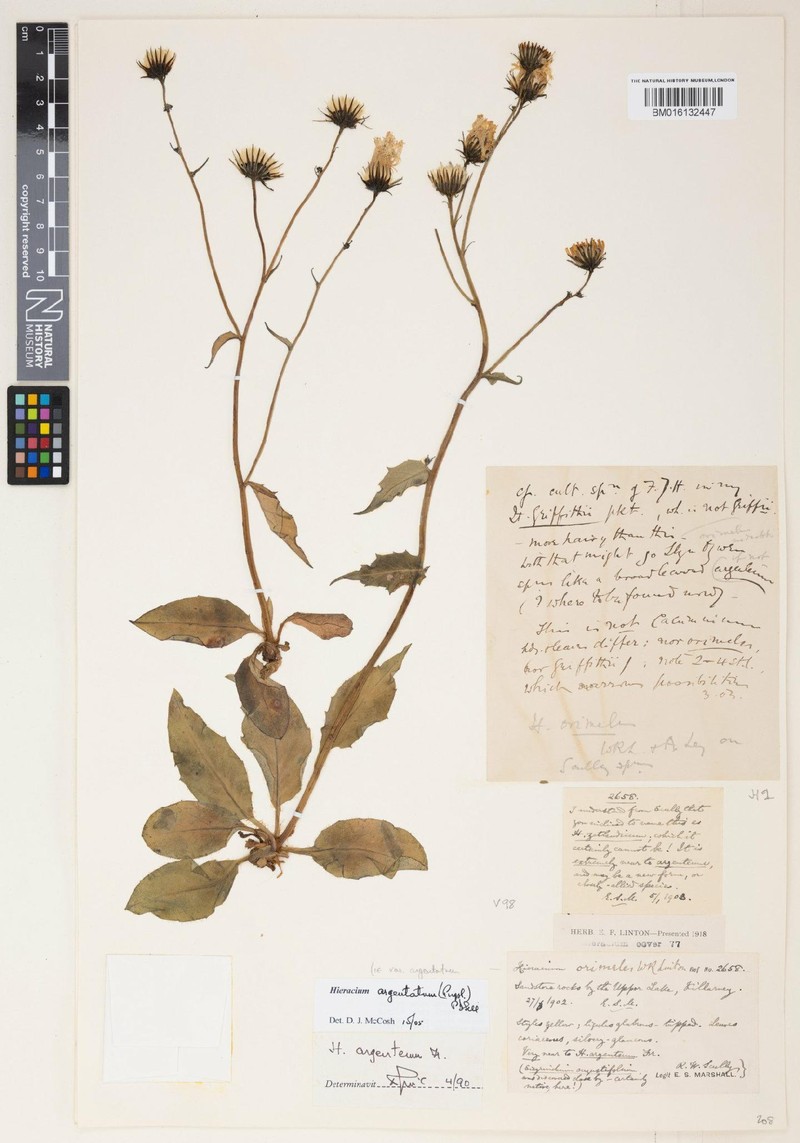 cm
0 1 2 3 4 5 6 7 8 9 10
copyright reserved
NATURAL
HISTORY
MUSEUM
THE NATURAL HISTORY MUSEUM, LONDON
BM016132447
cf. cult. spn of F.J.H. in my
H. Griffithii pkt., wh. is not Griffii.
- more hairy than this -
with that might go Llyn
spns like a broad leaved argenteum
(? where to be found now) -
This is not
differ: nor orimeles,
nor Griffithii; note 2-4 std.
which possibilities
3.03.
H. orimeles
WRL. & A. Ley on
Scully spns
H2
2658.
I understand from Scully that
you wished to name this as
H. , which it
certainly cannot be! It is
extremely near to argenteum,
and may be a new form, or
closely-allied species.
E.S.M. 1903.
V98
HERB E. F. LINTON—Presented 1918
77
(= var. argentatum
Hieracium orimeles W R Linton Ref. No. 2658.
Sandstone rocks by the Upper Lake, Killarney.
27/6 1902. E.S.M.
Styles yellow, ligules glabrous-tipped. Leaves
coriaceous, silvery-glaucous.
Very near to H. argenteum Fr.
close by - certainly
native here!)
R. W. Scully
Legit E. S. MARSHALL.
Hieracium argentatum (Pugsl.)
P D Sell
Det. D. J. McCosh 15/05
H. argenteum Fr.
Determinavit 4/90
208